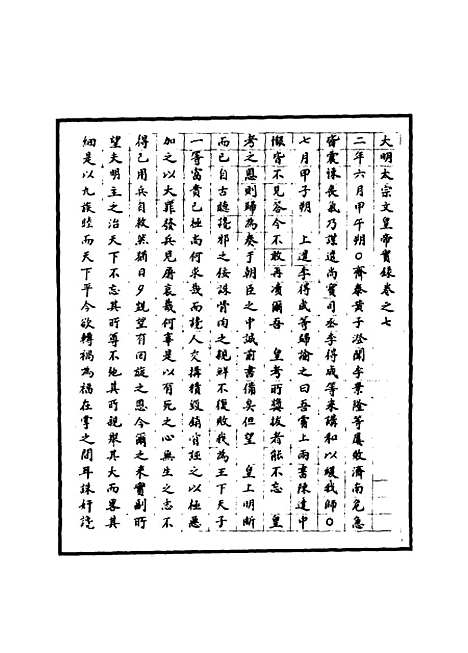 大明太宗文皇帝實錄卷之七
二年六月甲午朔○齊泰黃子澄聞李景隆等屢敗濟南危急
皆震悚喪氣乃謀遣尚寶司丞李得成等來講和以緩我師○
七月甲子朔　上遣李得成等歸諭之曰吾實上兩書陳達中
懇皆不見答今不敢再瀆爾吾　皇考所奬拔者能不忘　皇
考之恩則歸為奏于朝臣之中誠前書備矣但望　皇上明斷
而已自古聽讒邪之佞誅骨肉之親鮮不復敗我為王下天子
一等富貴已極尚何求哉而讒人交搆積毀銷骨誣之以極惡
加之以大罪發兵見屠哀哉何事是以有死之心無生之志不
得已用兵自救然猶日夕覬望有囘旋之恩今爾之來實副所
望夫明主之治天下不忘其所尊不絶其所親舉其大而畧其
細是以九族睦而天下平今欲轉禍為福在掌之間耳誅奸讒